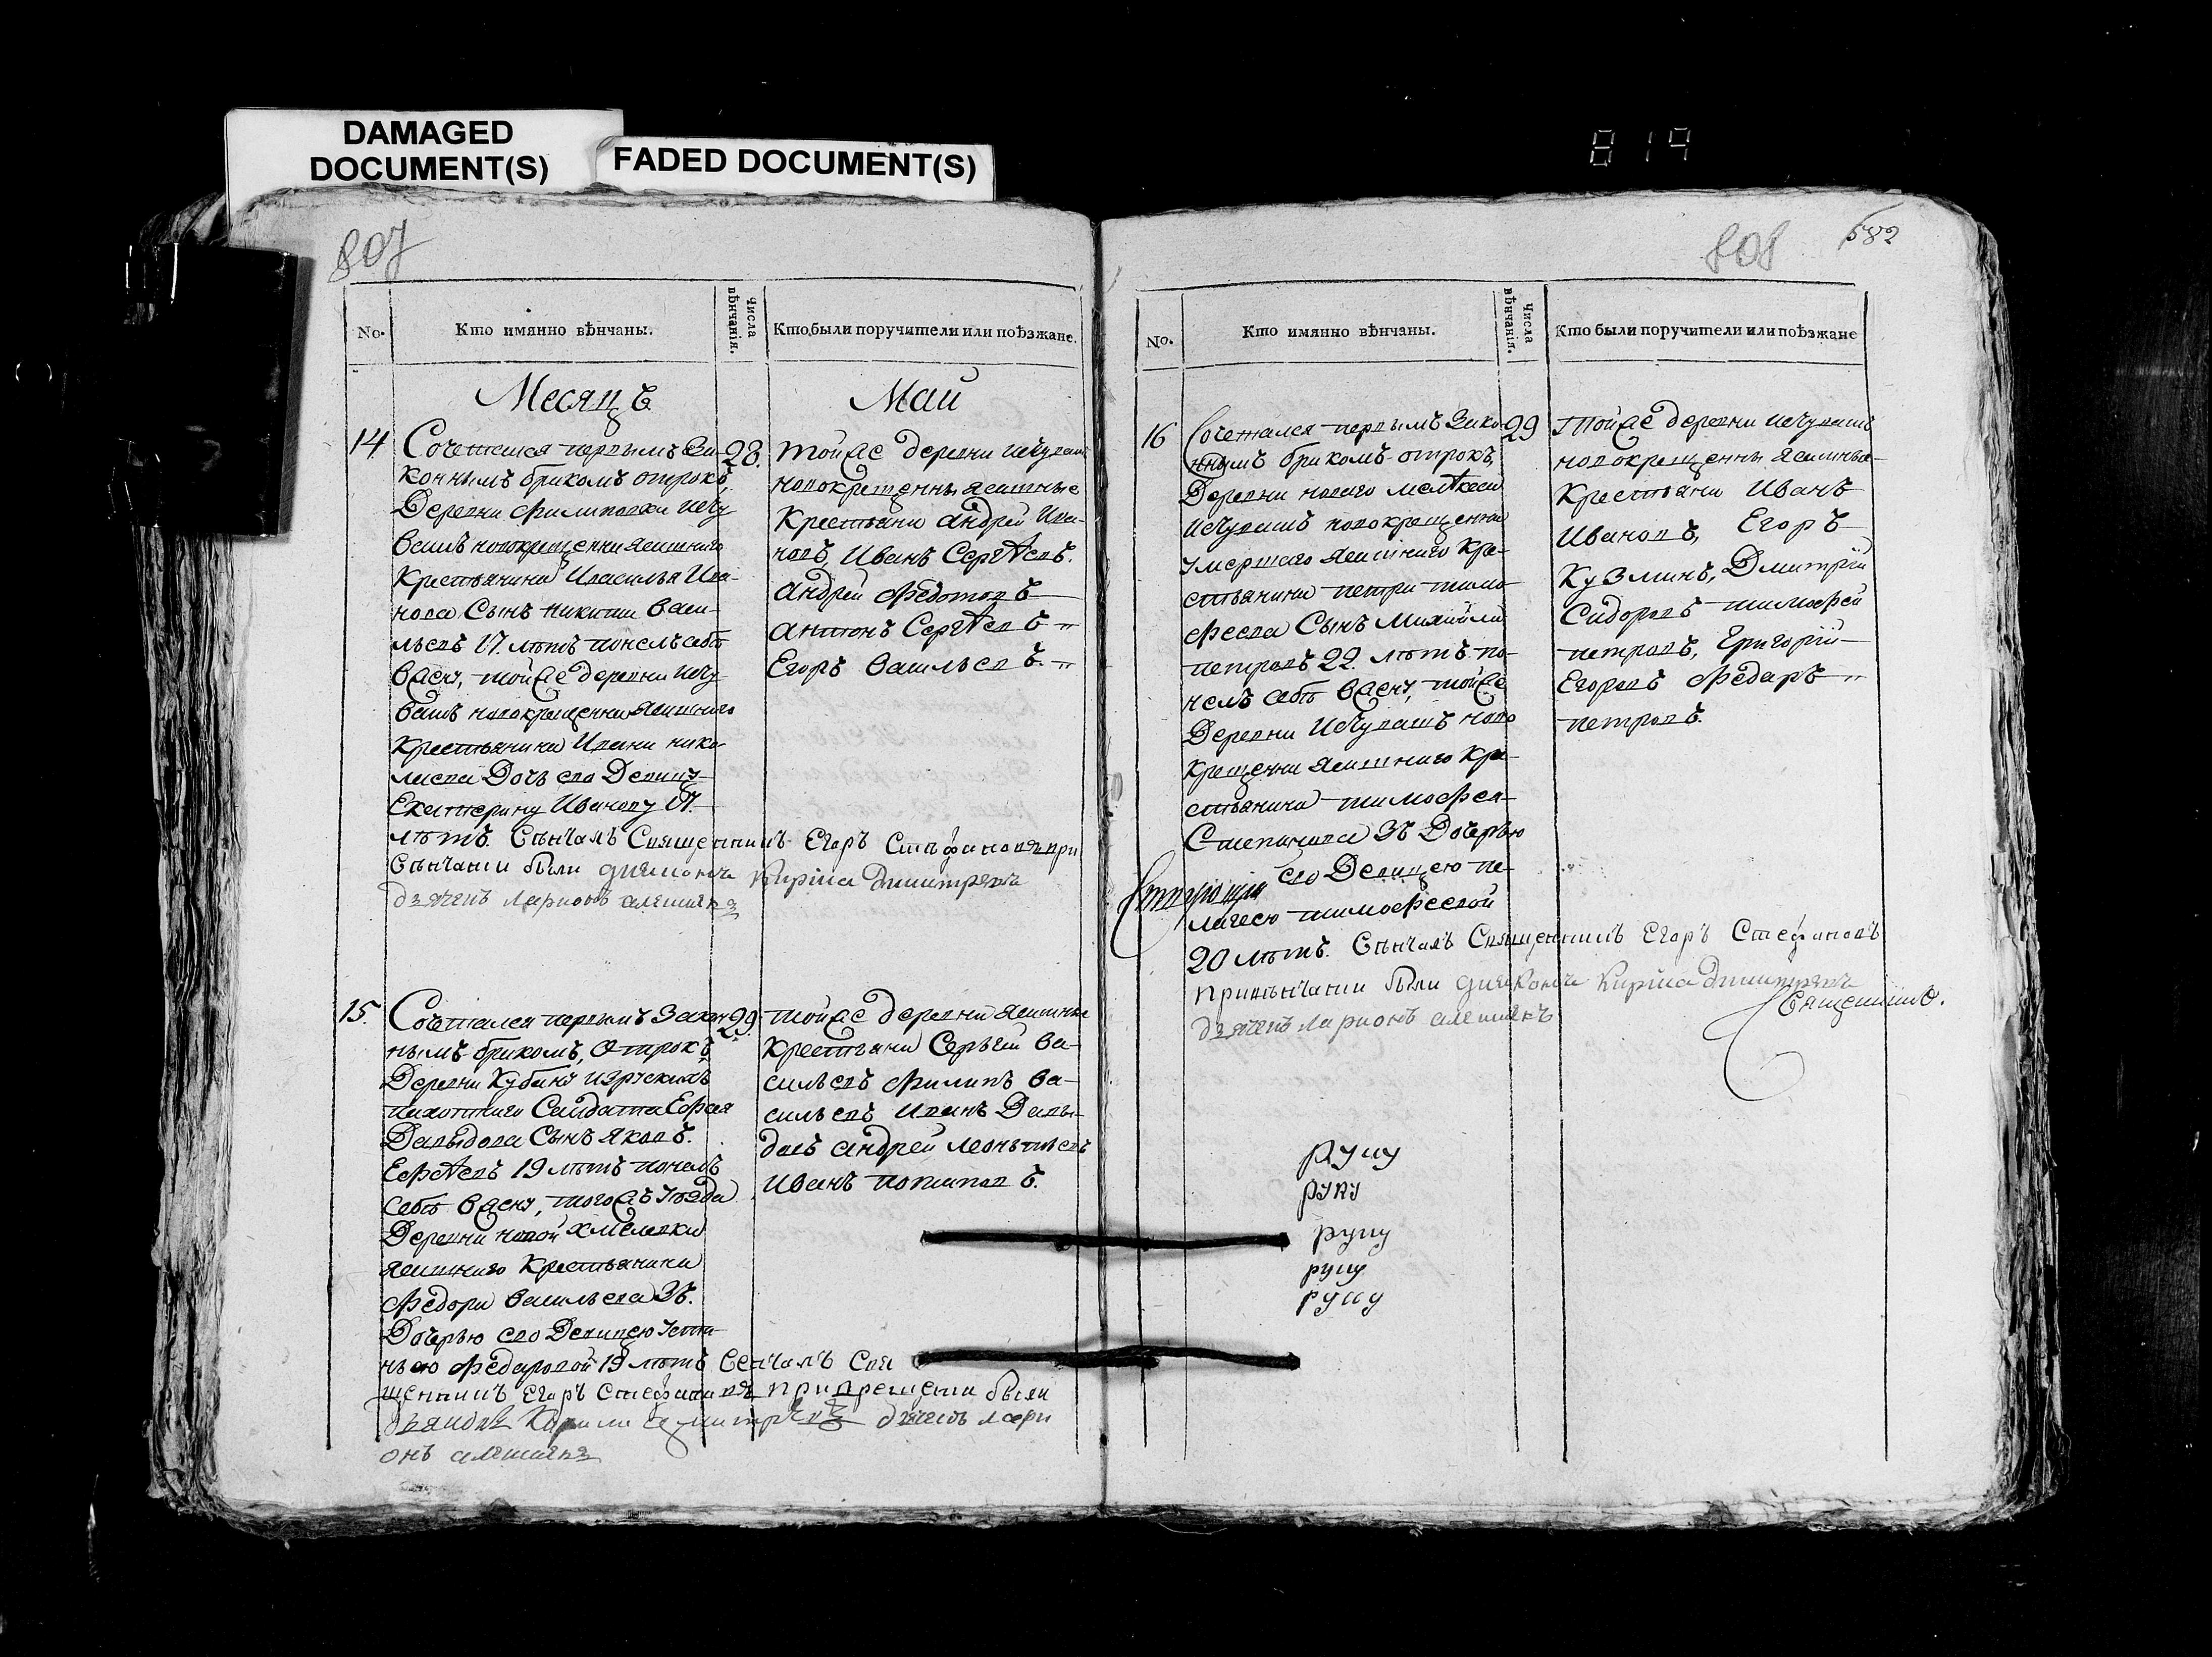 DAMAGED
DOCUMENT(S)
FADED DOCUMENT(S)
819
807
No.
Кто имянно вѣнчаны.
Числа вѣнчанія.
Кто были поручители или поѣзжане.
Месяцъ
Май
14
Сочетался первымъ за
коннымъ бракомъ отрокъ,
Деревни Филиповки исчу
вашъ новокрещенна ясашнаго
Крестьянина Ивасилья Ива-
нова Сынъ никита васи-
льевъ 17 лѣтъ понелъ себѣ
вжену, тойже деревни исчу
вашъ новокрещенна ясашнаго
Крестьянина Ивана нико-
лаева Дочь ево Девицу
Екатерину Иванову 17.
лѣтъ. Свѣнчалъ Священникъ Егоръ Стефановъ при
Свѣнчании были диаконъ Кирила Дмитревъ
дьячекъ ларионъ
28.
тойже деревни исчуваш
новокрещенны ясашные
Крестьяни андрей Ива-
новъ, Иванъ Сергѣевъ.
андрей Федотовъ
антонъ Сергѣевъ "
Егоръ Васильевъ. "
15.
Сочетался первымъ Закон
нымъ бракомъ, Отрокъ
Деревни Кубани изрускихъ
пахотнаго Салдата Ефея
Давыдова Сынъ яковъ.
Ефѣевъ 19 лѣтъ понелъ
себѣ вжену, тогожъ уезда
Деревни новой хмелевки
ясашнаго Крестьянина
Федора Васильева Зъ.
Дочерью ево Девицею усти-
ньею Федаровой 19 лѣтъ Свенчалъ Свя
щенникъ Егоръ Стефановъ при были
Кирила дмитревъ дьячекъ лари
онъ
29.
тойже деревни ясашные
Крестьяни Сергѣй Ва-
сильевъ Филипъ Ва-
сильевъ Иванъ Давы-
довъ андрей леонтьевъ
Иванъ потаповъ.
808
582
No.
Кто имянно вѣнчаны.
Числа вѣнчанія.
Кто были поручители или поѣзжане
16
Сочетался первымъ Зако
ннымъ бракомъ отрокъ,
Деревни новаго мелѣкеса
исчувашъ новокрещенна
умершаго ясашнаго Кре-
стьянина петра тимо-
феева Сынъ Михайла
петровъ 22. лѣтъ по-
нелъ себѣ вжену, тойже
Деревни исчувашъ ново
Крещенна ясашнаго Кре-
стьянина тимофея
Степанова Зъ Дочерью
ево Девицею пе-
лагеею тимофеевой
20 лѣтъ. Свѣнчалъ Священникъ Егоръ Стефановъ
Привѣнчании были диаконъ Кирила Дмитревъ
дьячекъ ларионъ
Священникъ.
29
Тойже деревни исчувашъ
новокрещенны ясашные
Крестьяни Иванъ
Ивановъ, Егоръ
Кузминъ, Дмитрій
Сидоровъ тимофей
петровъ, Григорій
Егоровъ Федаръ "
петровъ.
руку
руку
руку
руку
руку